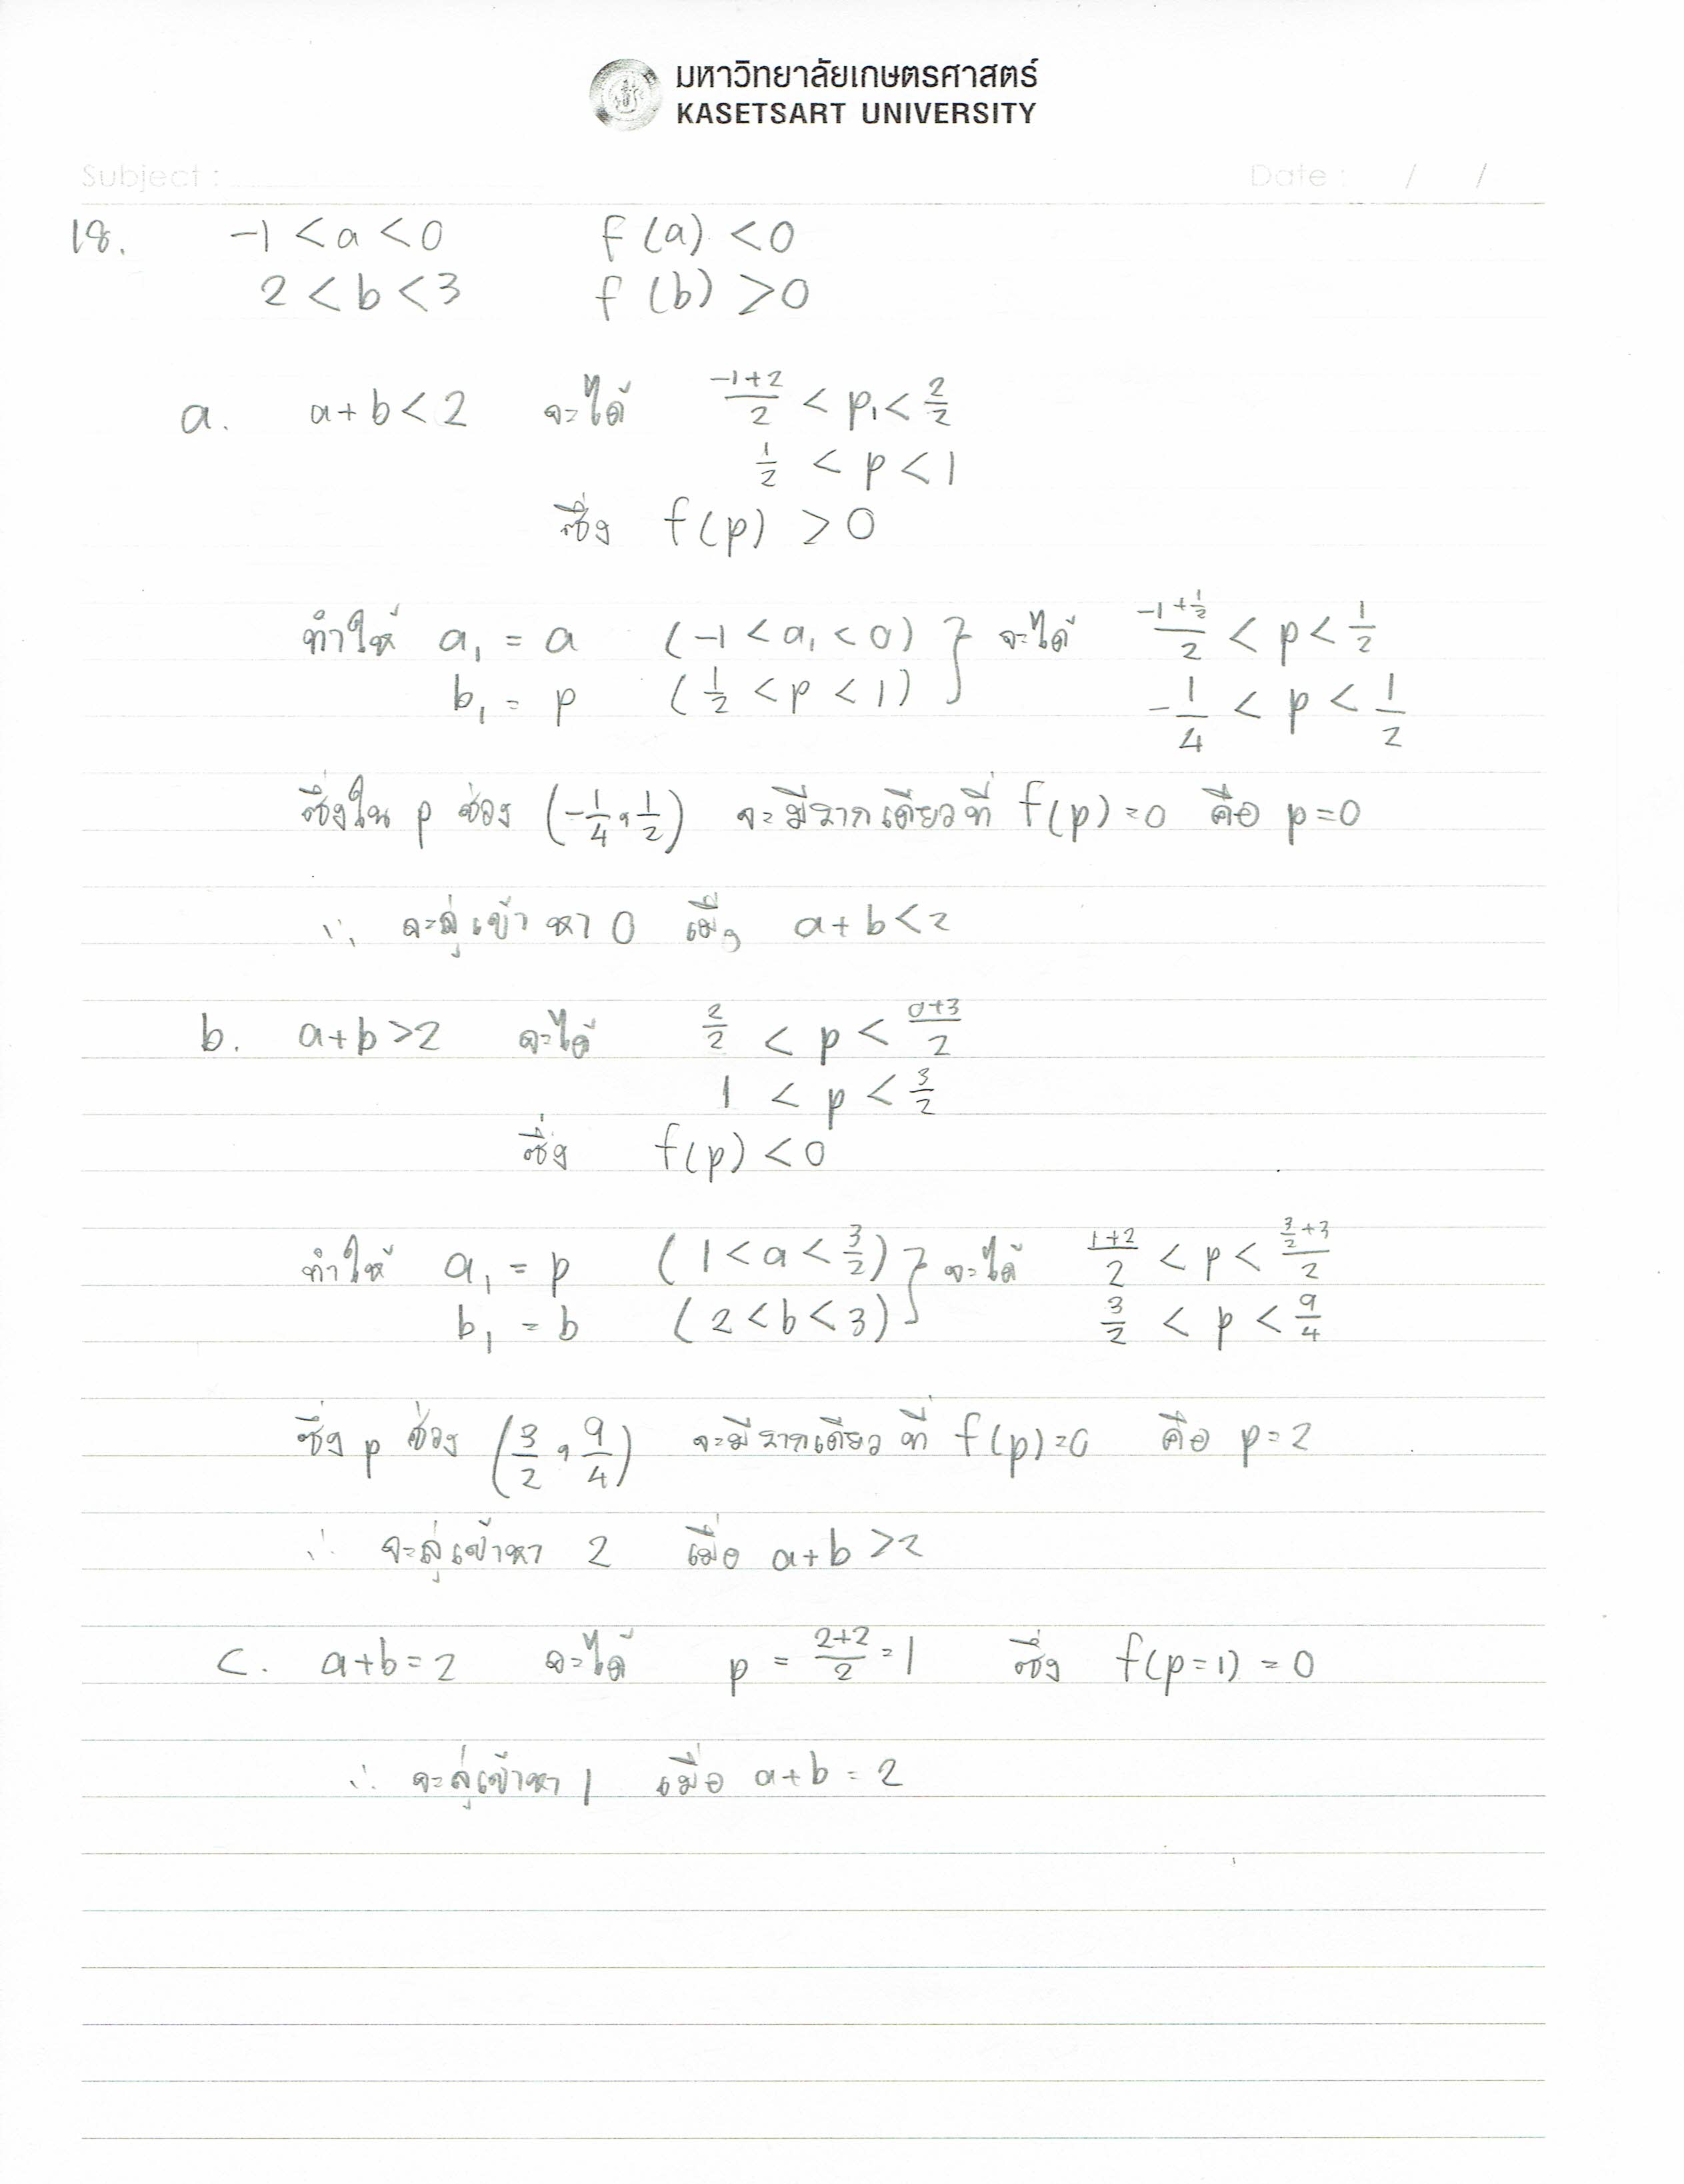 มหาวิทยาลัยเกษตรศาสตร์
KASETSART UNIVERSITY
Subject : Date : / /
18. -1 < a < 0 f(a) < 0
2 < b < 3 f(b) > 0
a. a+b < 2 จะได้ \frac{-1+2}{2} < p₁ < \frac{2}{2}
\frac{1}{2} < p < 1
ซึ่ง f(p) > 0
ทำให้ a₁ = a (-1 < a₁ < 0) } จะได้ \frac{-1+\frac{1}{2}}{2} < p < \frac{1}{2}
b₁ = p (\frac{1}{2} < p < 1) -\frac{1}{4} < p < \frac{1}{2}
ซึ่งใน p ช่วง (-\frac{1}{4}, \frac{1}{2}) จะมีรากเดียวที่ f(p)=0 คือ p=0
∴ จะลู่เข้าหา 0 เมื่อ a+b<2
b. a+b>2 จะได้ \frac{2}{2} < p < \frac{0+3}{2}
1 < p < \frac{3}{2}
ซึ่ง f(p) < 0
ทำให้ a₁ = p (1 < a < \frac{3}{2}) } จะได้ \frac{1+2}{2} < p < \frac{\frac{3}{2}+3}{2}
b₁ = b (2 < b < 3) \frac{3}{2} < p < \frac{9}{4}
ซึ่ง p ช่วง (\frac{3}{2}, \frac{9}{4}) จะมีรากเดียวที่ f(p)=0 คือ p=2
∴ จะลู่เข้าหา 2 เมื่อ a+b>2
c. a+b=2 จะได้ p = \frac{2+2}{2} = 1 ซึ่ง f(p=1) = 0
∴ จะลู่เข้าหา 1 เมื่อ a+b = 2